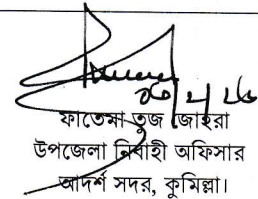 ফাতেমা তুজ জোহরা
উপজেলা নির্বাহী অফিসার
আদর্শ সদর, কুমিল্লা।